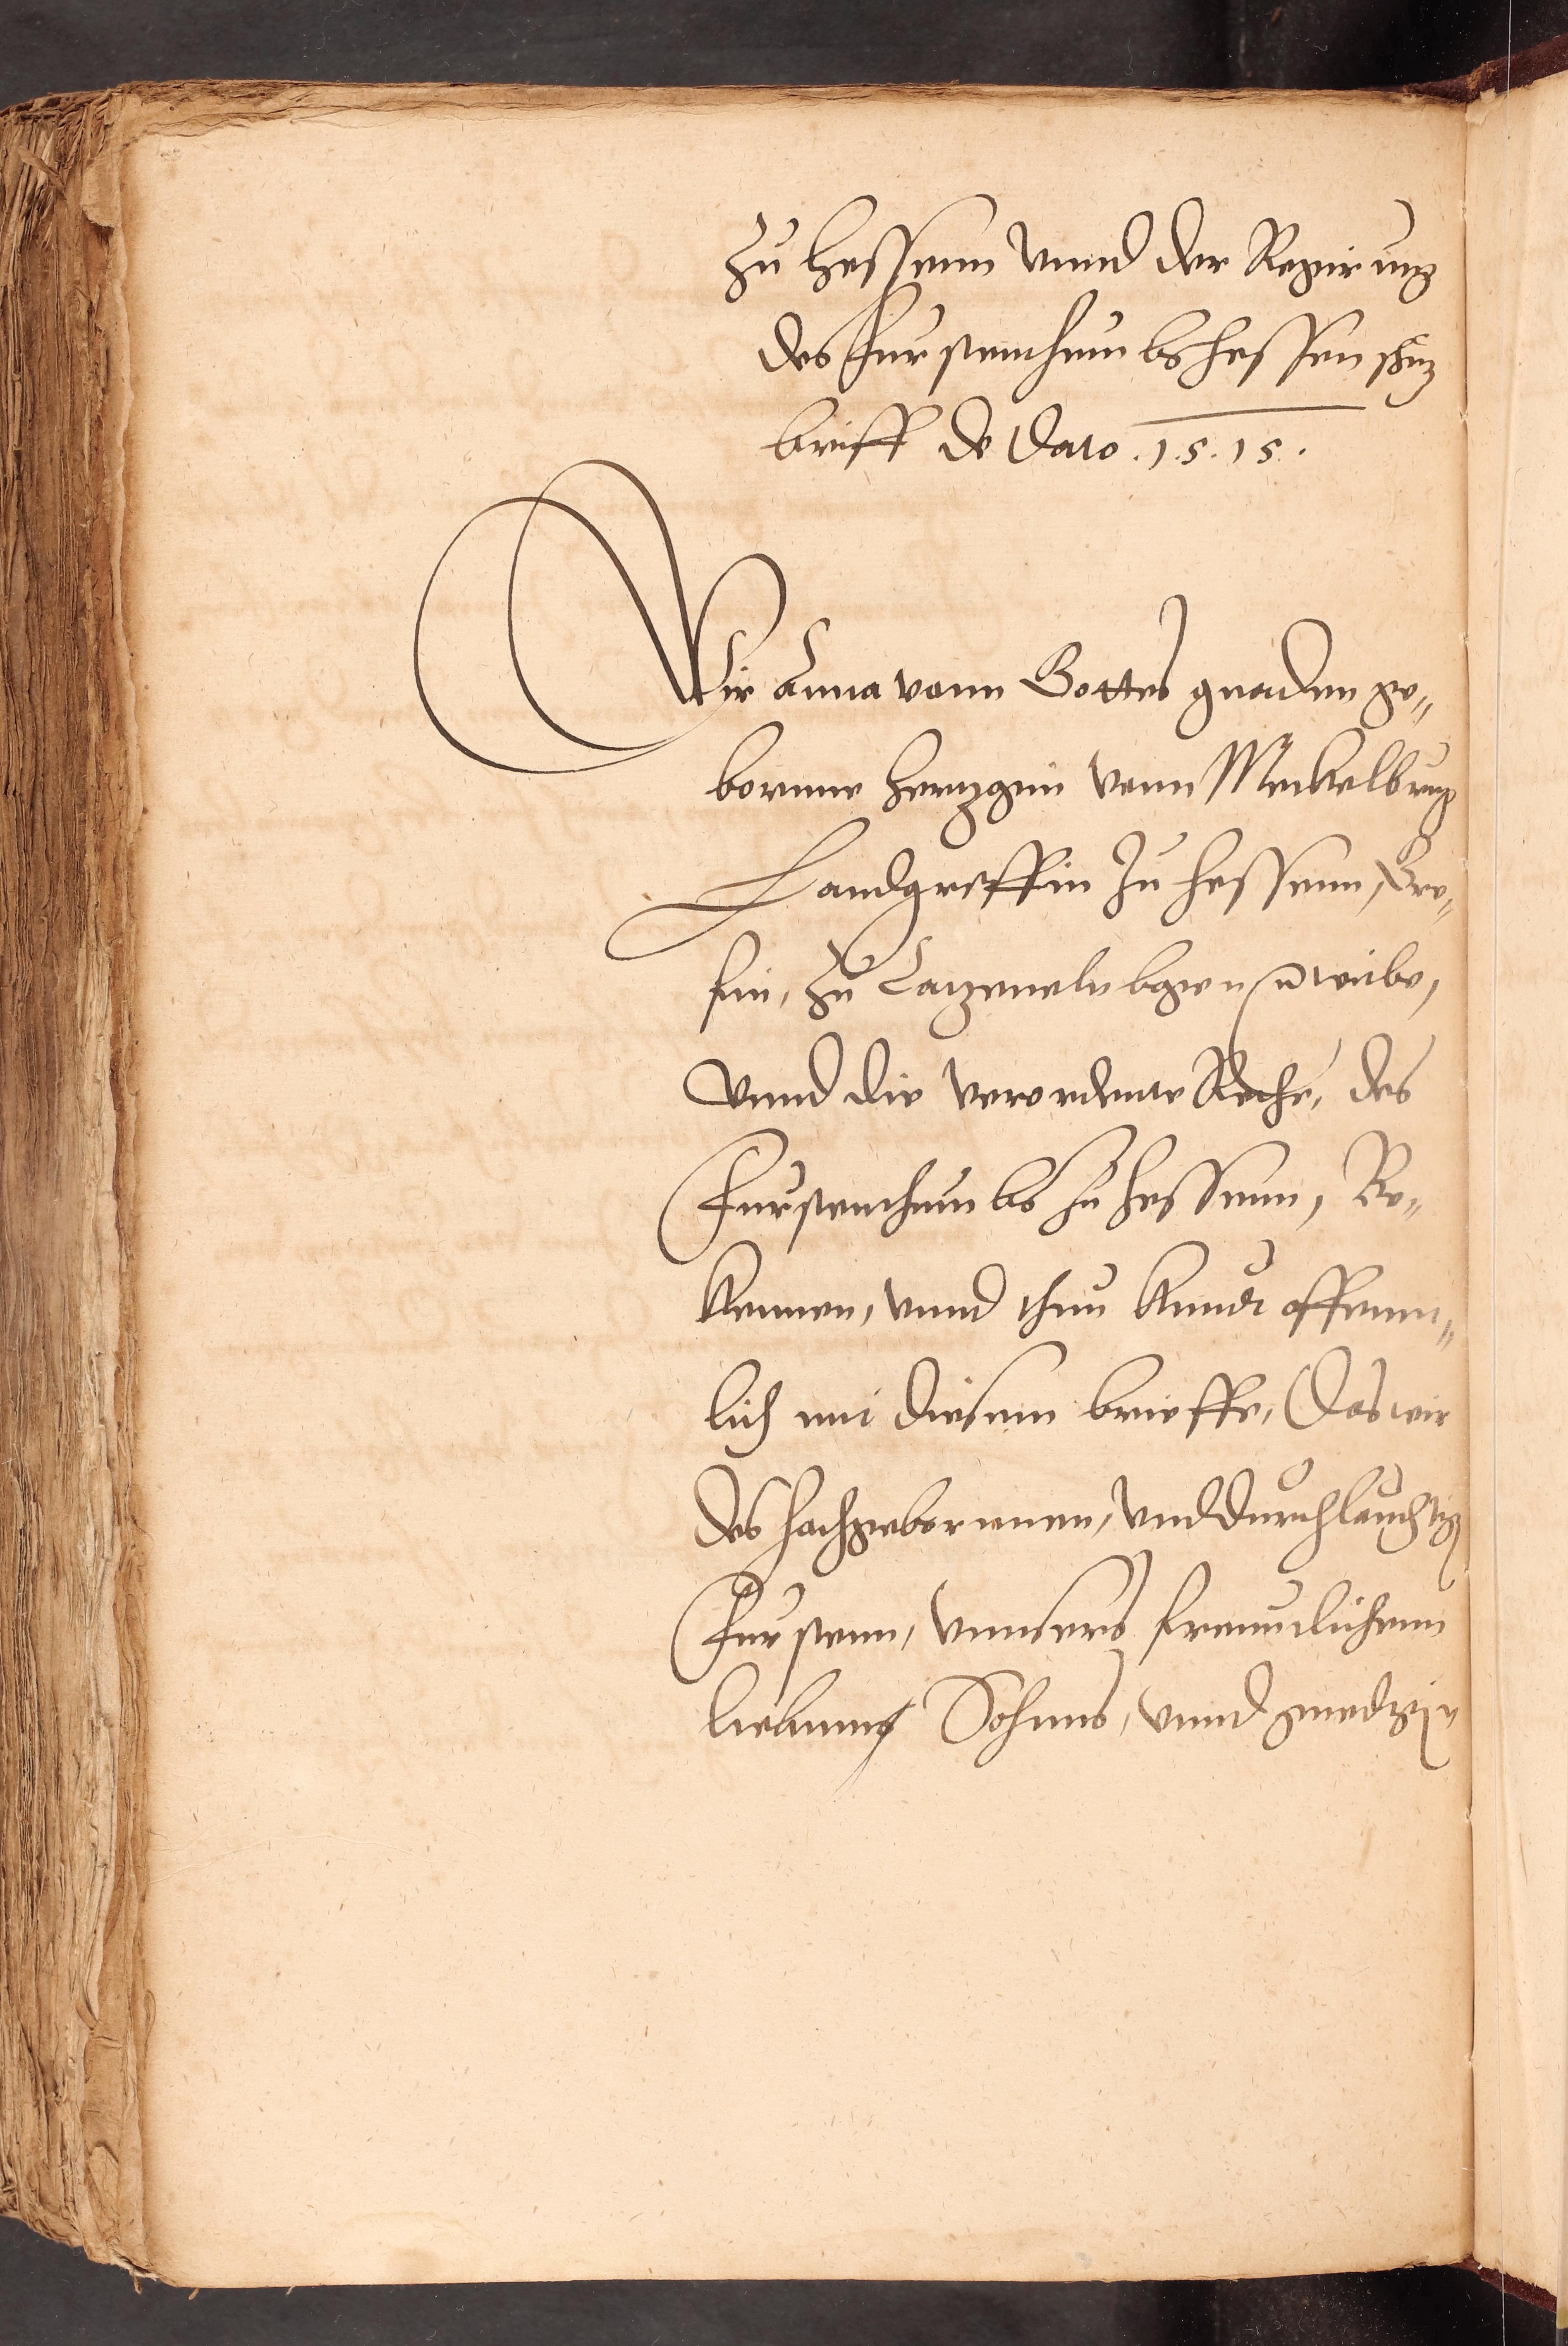 zu Hessenn vnnd der Regirung
des Furstenthumbs Hessen schuz
brieff de dato .1.5.15.
Wir Anna vonn Gottes gnaden ge„
bornne Hertzgin vonn Meckelburg
Landgreffin zu Hessenn, Gre„
fin, zu Catzenelnbogen witwe,
vnnd die verordente Rethe, des
Furstenthumbs zu Hessenn, Be„
kennen, vnnd thun kundt offenn„
lich mit diesem brieffe, Das wir
des Hochgebornnen, vnd durchlauchtig
Fursten, vnnsers freuntlichenn
liebenn Sohnns, vnnd gnedigen